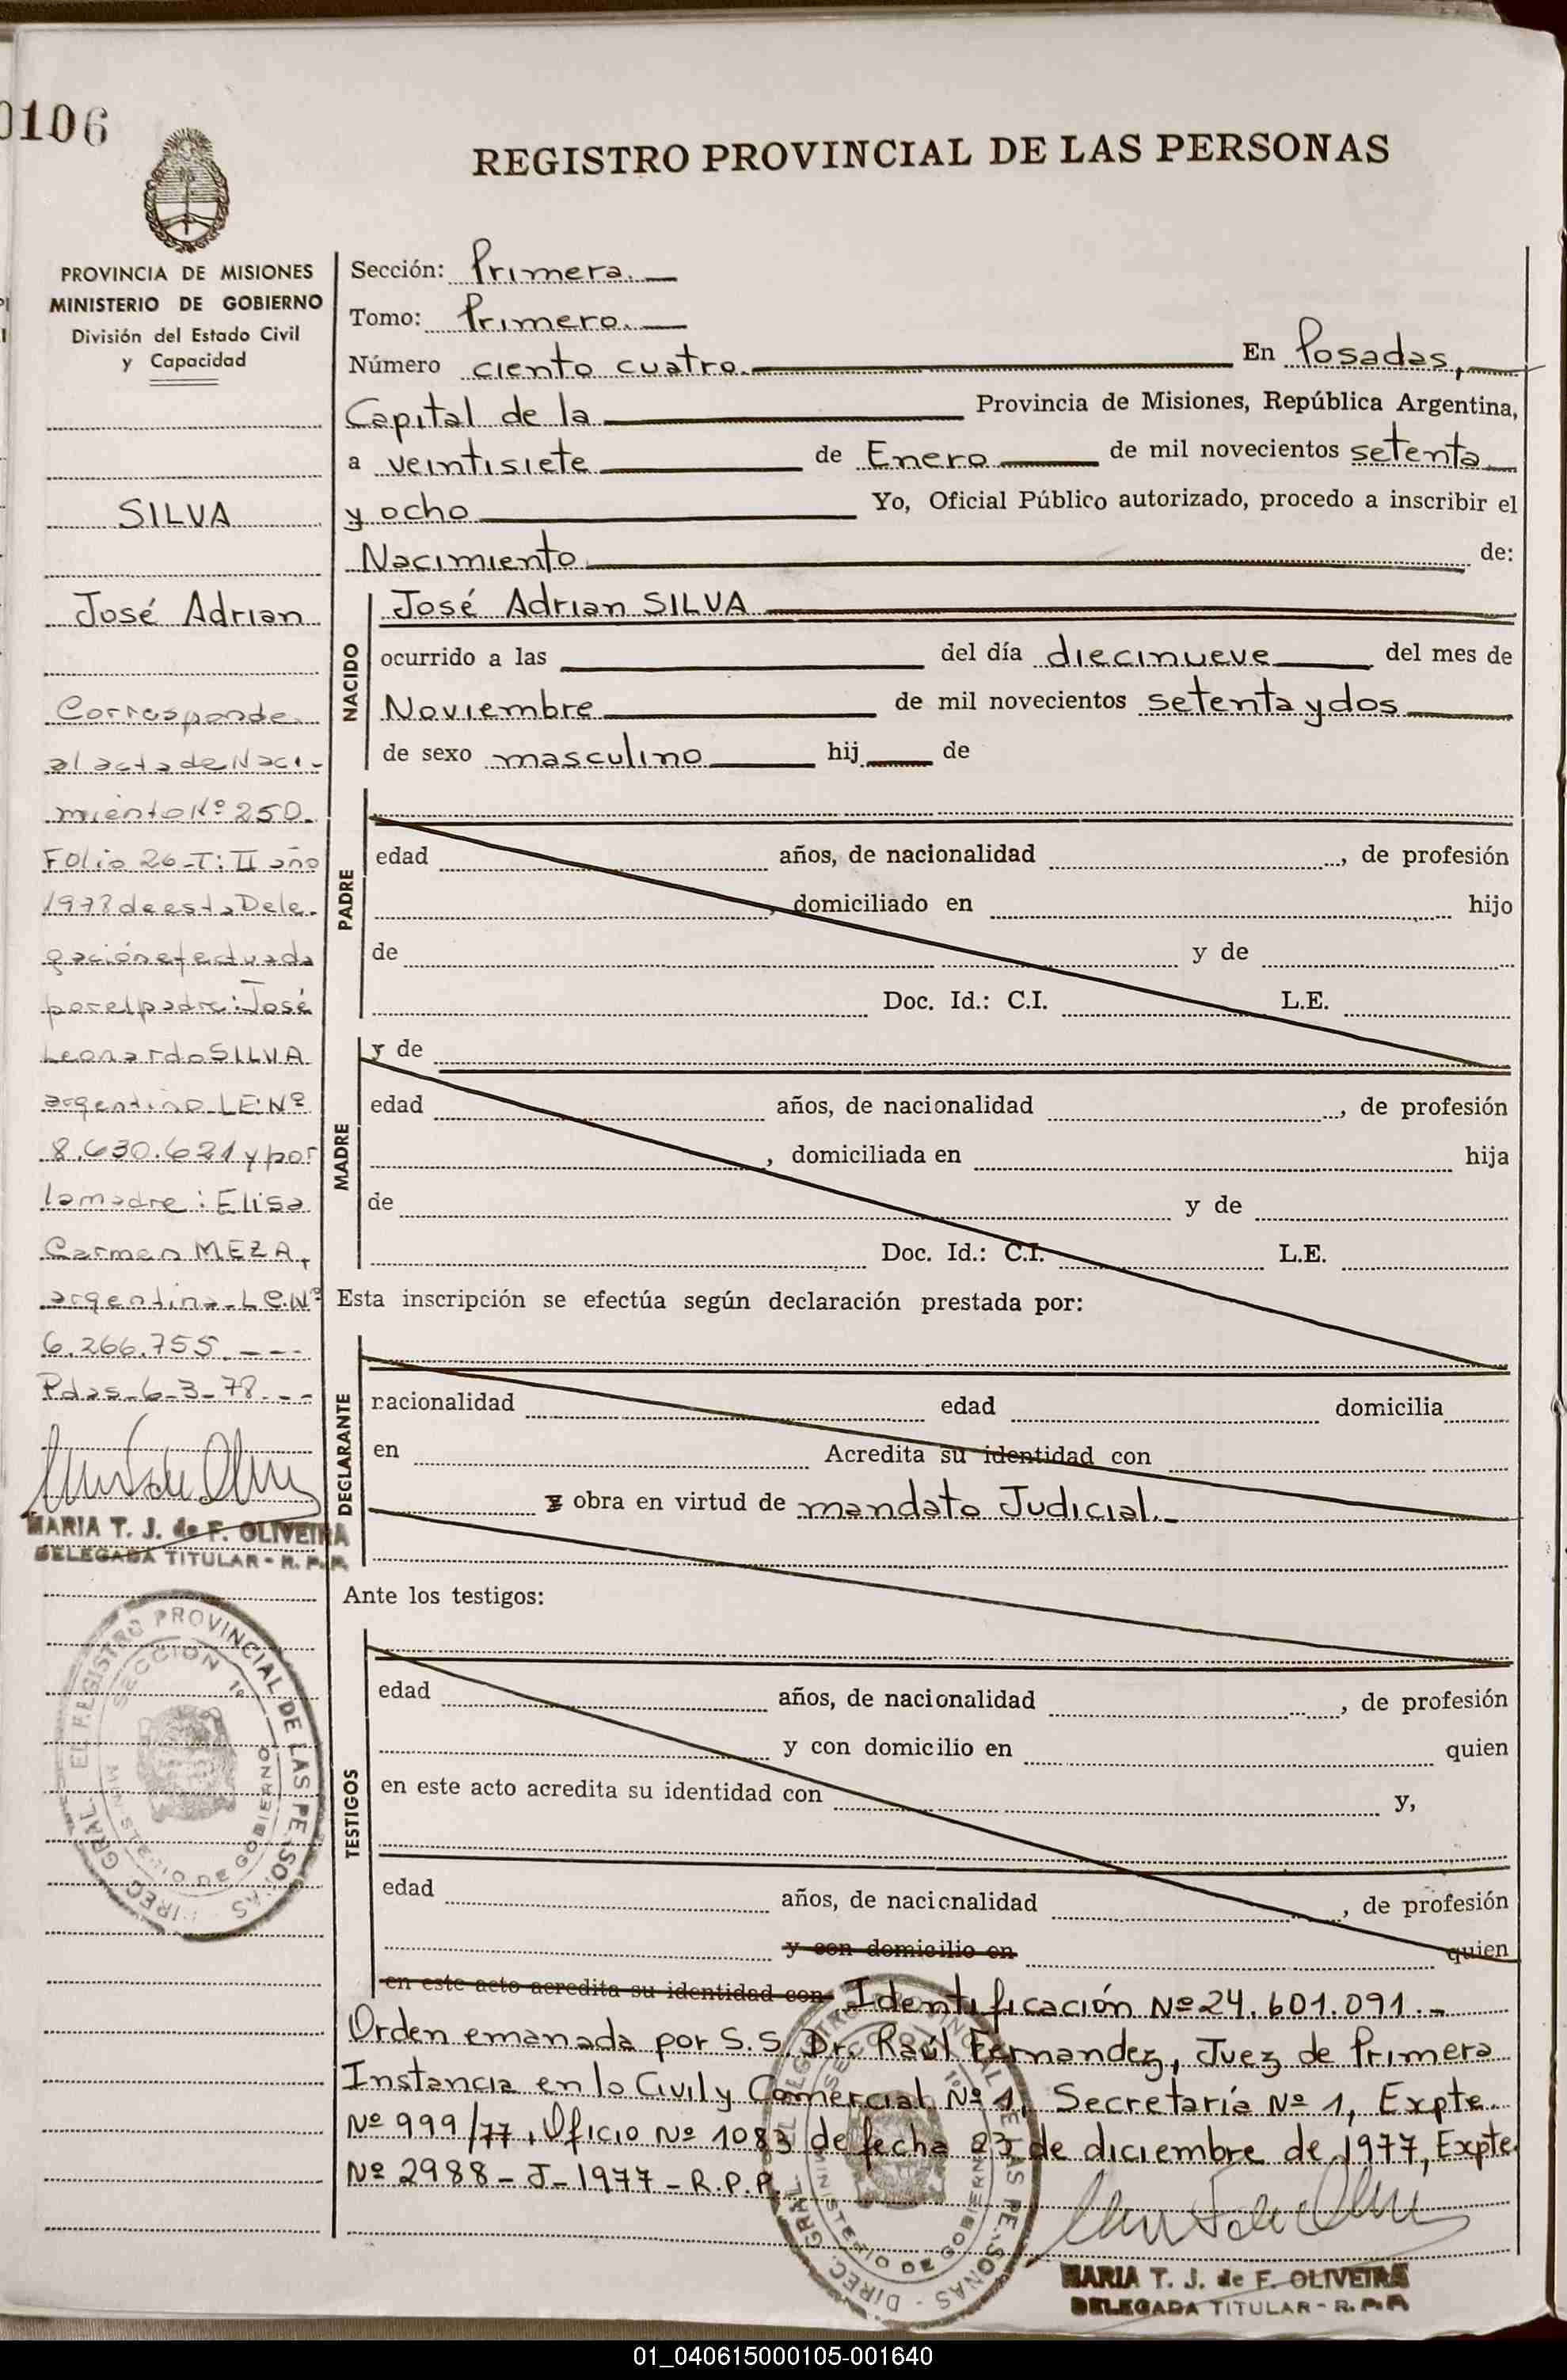 0106
REGISTRO PROVINCIAL DE LAS PERSONAS
PROVINCIA DE MISIONES
MINISTERIO DE GOBIERNO
División del Estado Civil
y Capacidad
SILVA
José Adrian
Corresponde
al acta de Naci-
miento Nº 250.
Folio 26-T: II año
1978 de esta Dele-
gación efectuada
por el padre: José
Leonardo SILVA
argentino LE.Nº
8.630.621 y por
la madre: Elisa
Carmen MEZA,
argentina-L.C.Nº
6.266.755.---
Pdas-6-3-78.--
MARIA T. J. de F. OLIVEIRA
DELEGADA TITULAR - R. P. P.
DIREC. GRAL. DEL REGISTRO PROVINCIAL DE LAS PERSONAS
SECCION 1º
MINISTERIO DE GOBIERNO
Sección: Primera.
Tomo: Primero.
Número ciento cuatro. En Posadas,
Capital de la Provincia de Misiones, República Argentina,
a veintisiete de Enero de mil novecientos setenta
y ocho Yo, Oficial Público autorizado, procedo a inscribir el
Nacimiento de:
NACIDO
José Adrian SILVA
ocurrido a las del día diecinueve del mes de
Noviembre de mil novecientos setenta y dos
de sexo masculino hij de
PADRE
edad años, de nacionalidad , de profesión
, domiciliado en hijo
de y de
Doc. Id.: C.I. L.E.
MADRE
y de
edad años, de nacionalidad , de profesión
, domiciliada en hija
de y de
Doc. Id.: C.I. L.E.
Esta inscripción se efectúa según declaración prestada por:
DECLARANTE
nacionalidad edad domicilia
en Acredita su identidad con
obra en virtud de mandato Judicial.-
Ante los testigos:
TESTIGOS
edad años, de nacionalidad , de profesión
y con domicilio en quien
en este acto acredita su identidad con y,
edad años, de nacionalidad , de profesión
y con domicilio en quien
en este acto acredita su identidad con Identificación Nº 24.601.091.-
Orden emanada por S.S. Dr. Raúl Fernandez, Juez de Primera
Instancia en lo Civil y Comercial Nº 1, Secretaría Nº 1, Expte.
Nº 999/77, Oficio Nº 1083 de fecha 23 de diciembre de 1977, Expte
Nº 2988-J-1977-R.P.P.
DIREC. GRAL. DEL REGISTRO PROVINCIAL DE LAS PERSONAS
SECCION 1º
MINISTERIO DE GOBIERNO
MARIA T. J. de F. OLIVEIRA
DELEGADA TITULAR - R. P. P.
01_040615000105-001640